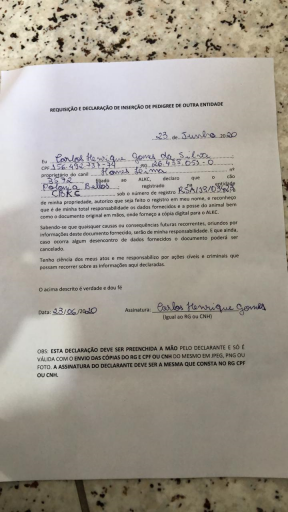 REQUISIÇÃO E DECLARAÇÃO DE INSERÇÃO DE PEDIGREE DE OUTRA ENTIDADE
23 de Junho 2020
Eu Carlos Henrique Gomes da Silva
CPF RG
proprietário do canil nº
filiado ao ALKC, declaro que o cão
registrado na entidade
CBKC sob o número de registro
de minha propriedade, autorizo que seja feito o registro em meu nome, e reconheço
que é de minha total responsabilidade os dados fornecidos e a posse do animal bem
como o documento original em mãos, onde forneço a cópia digital para o ALKC.
Sabendo-se que quaisquer causas ou consequências futuras recorrentes, oriundos por
informações deste documento fornecido, serão de minha responsabilidade. E que ainda,
caso ocorra algum desencontro de dados fornecidos o documento poderá ser
cancelado.
Tenho ciência dos meus atos e me responsabilizo por ações cíveis e criminais que
possam recorrer sobre as informações aqui declaradas.
O acima descrito é verdade e dou fé
Data: 23/06/2020 Assinatura: Carlos Henrique Gomes
(Igual ao RG ou CNH)
OBS: ESTA DECLARAÇÃO DEVE SER PREENCHIDA A MÃO PELO DECLARANTE E SÓ É
VÁLIDA COM O ENVIO DAS CÓPIAS DO RG E CPF OU CNH DO MESMO EM JPEG, PNG OU
FOTO. A ASSINATURA DO DECLARANTE DEVE SER A MESMA QUE CONSTA NO RG CPF
OU CNH.